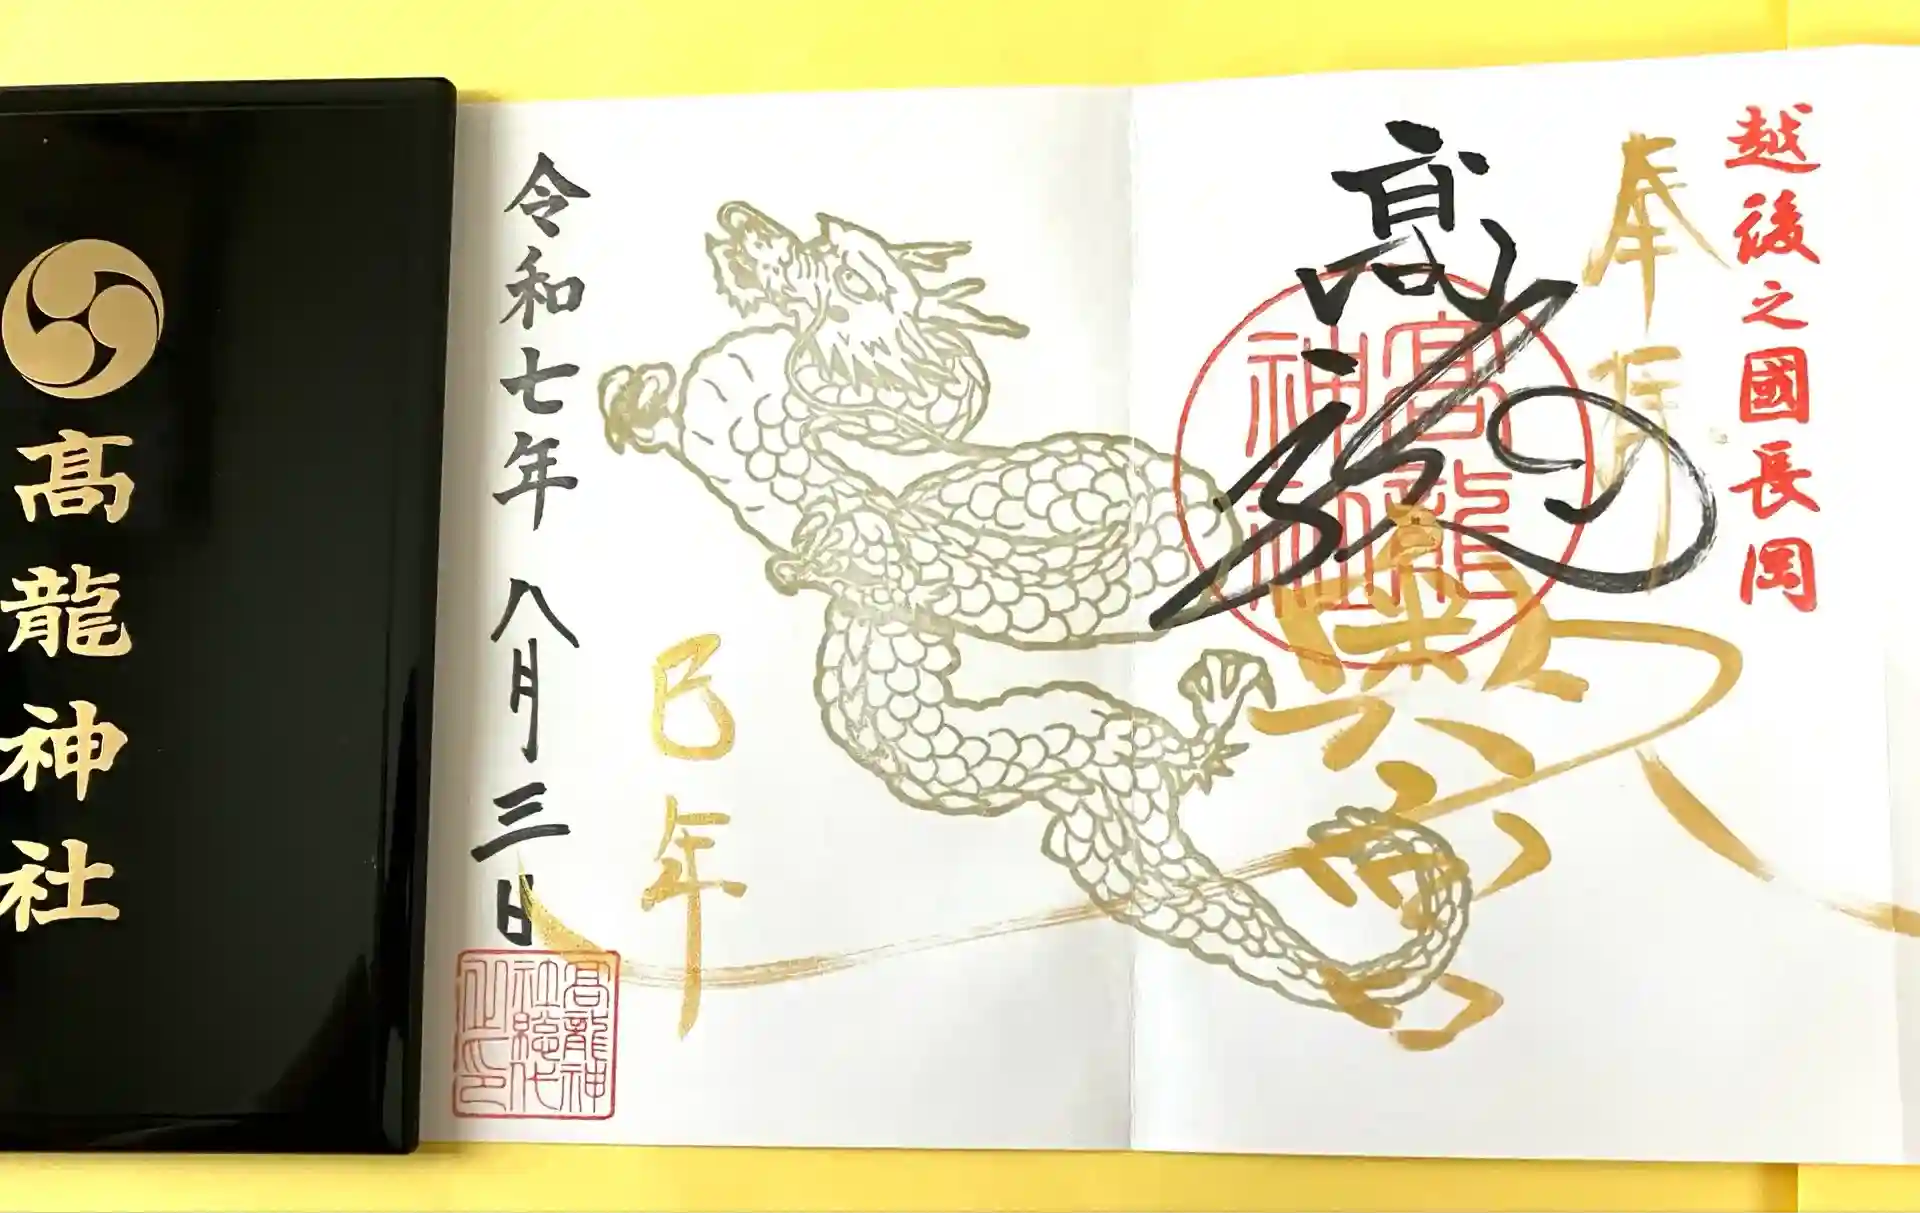 越後之國長岡
奉拝
髙龍
髙龍
神社
巳年
令和七年八月三日
髙龍神
社総代
之印
髙龍神社